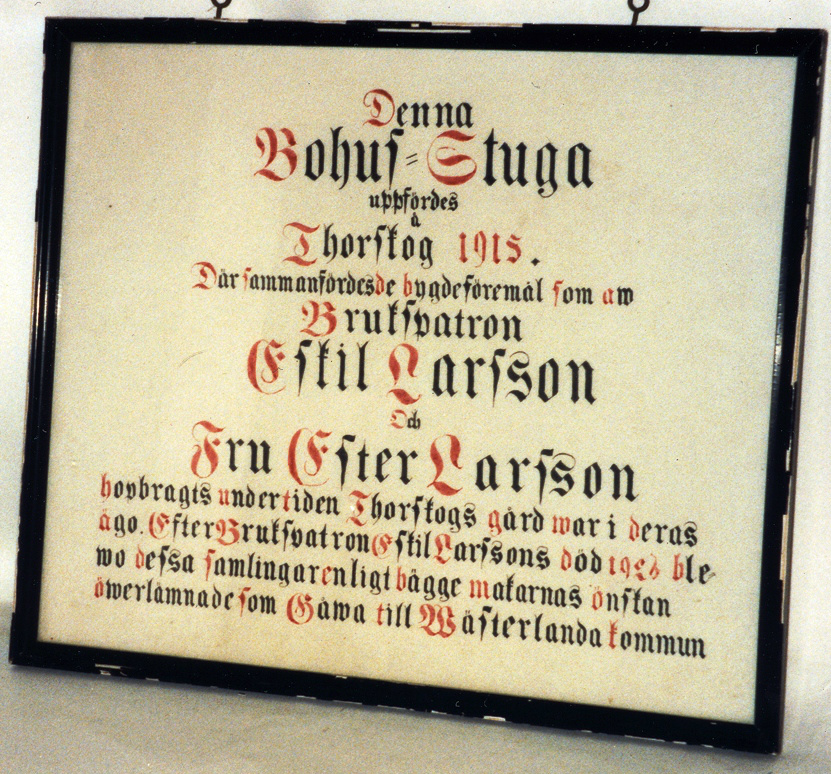 Denna
Bohus-Stuga
uppfördes
å
Thorskog 1915.
Där sammanfördesde bygdeföremål som aw
Brukspatron
Eskil Larsson
Och
Fru Ester Larsson
hopbragts undertiden Thorskogs gård war i deras
ägo. Efter Brukspatron Eskil Larssons död ble-
wo dessa samlingar enligt bägge makarnas önskan
öwerlämnade som Gåwa till Wästerlanda kommun